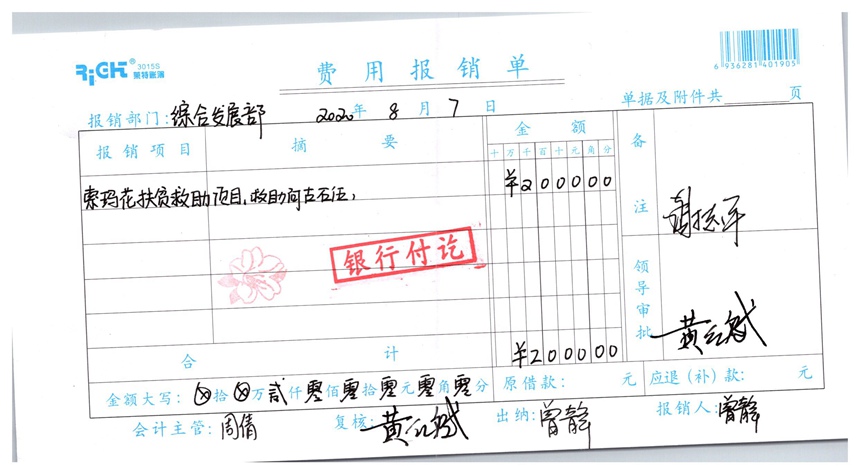 RiCHT® 3015S
莱特账簿
费用报销单
6 936281 401905
报销部门:综合发展部 2020年 8月 7日 单据及附件共 页
报销项目 摘要 金额 备注
十万千百十元角分
索玛花扶贫救助项目,救助阿古石 ¥200000
银行付讫
领导审批 黄红斌
合计 ¥200000
金额大写: ⊗拾⊗万贰仟零佰零拾零元零角零分 原借款: 元 应退(补)款: 元
会计主管:周倩 复核:黄红斌 出纳:曾静 报销人:曾静